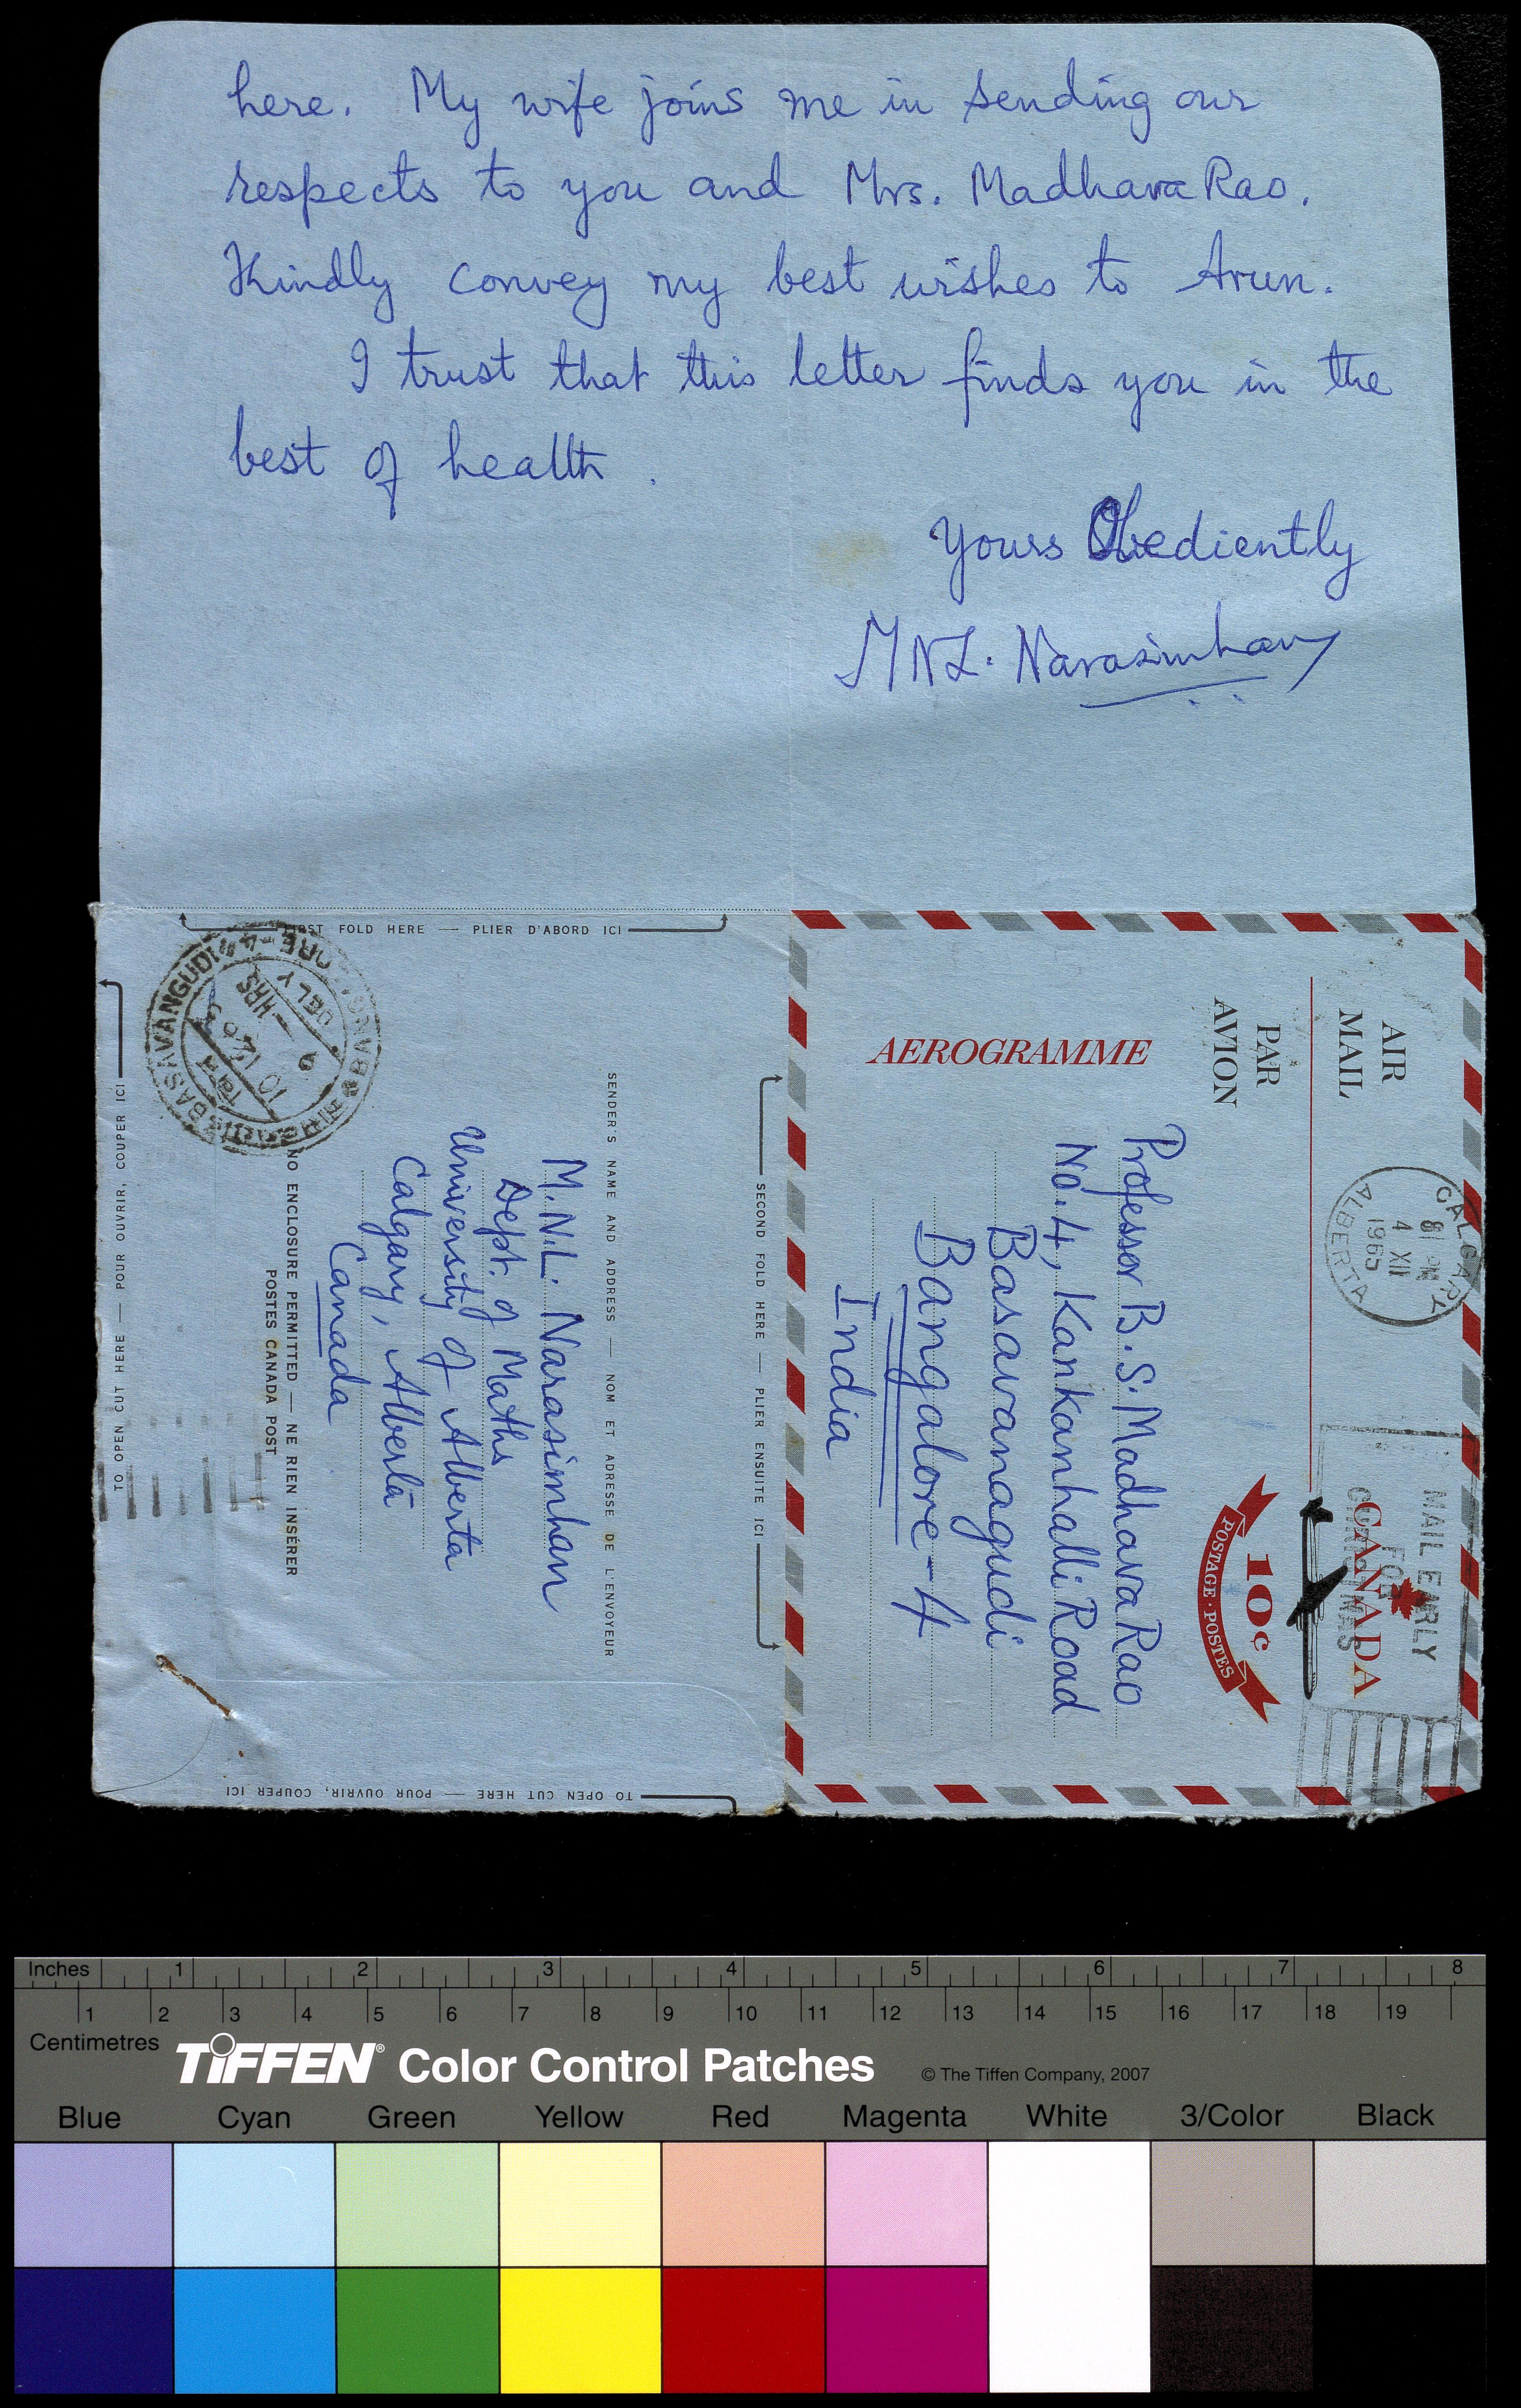 here. My wife joins me in sending our
respects to you and Mrs. Madhava Rao.
Kindly convey my best wishes to Arun.
I trust that this letter finds you in the
best of health.
Yours Obediently
MNL. Narasimhan
FIRST FOLD HERE — PLIER D'ABORD ICI
AEROGRAMME
AIR
MAIL
PAR
AVION
CALGARY
8 PM
4 XII
1965
ALBERTA
MAIL EARLY
FOR
CHRISTMAS
CANADA
10¢
POSTAGE · POSTES
Professor B. S. Madhava Rao
No. 4, Kankanhalli Road
Basavanagudi
Bangalore-4
India
SECOND FOLD HERE — PLIER ENSUITE ICI
SENDER'S NAME AND ADDRESS — NOM ET ADRESSE DE L'ENVOYEUR
M.N.L. Narasimhan
Dept. of Maths
University of Alberta
Calgary, Alberta
Canada
NO ENCLOSURE PERMITTED — NE RIEN INSÉRER
POSTES CANADA POST
BASAVANGUDI
DELY
HRS
TO OPEN CUT HERE — POUR OUVRIR, COUPER ICI
TO OPEN CUT HERE — POUR OUVRIR, COUPER ICI
Inches 1 2 3 4 5 6 7 8
1 2 3 4 5 6 7 8 9 10 11 12 13 14 15 16 17 18 19
Centimetres
TIFFEN® Color Control Patches © The Tiffen Company, 2007
Blue Cyan Green Yellow Red Magenta White 3/Color Black